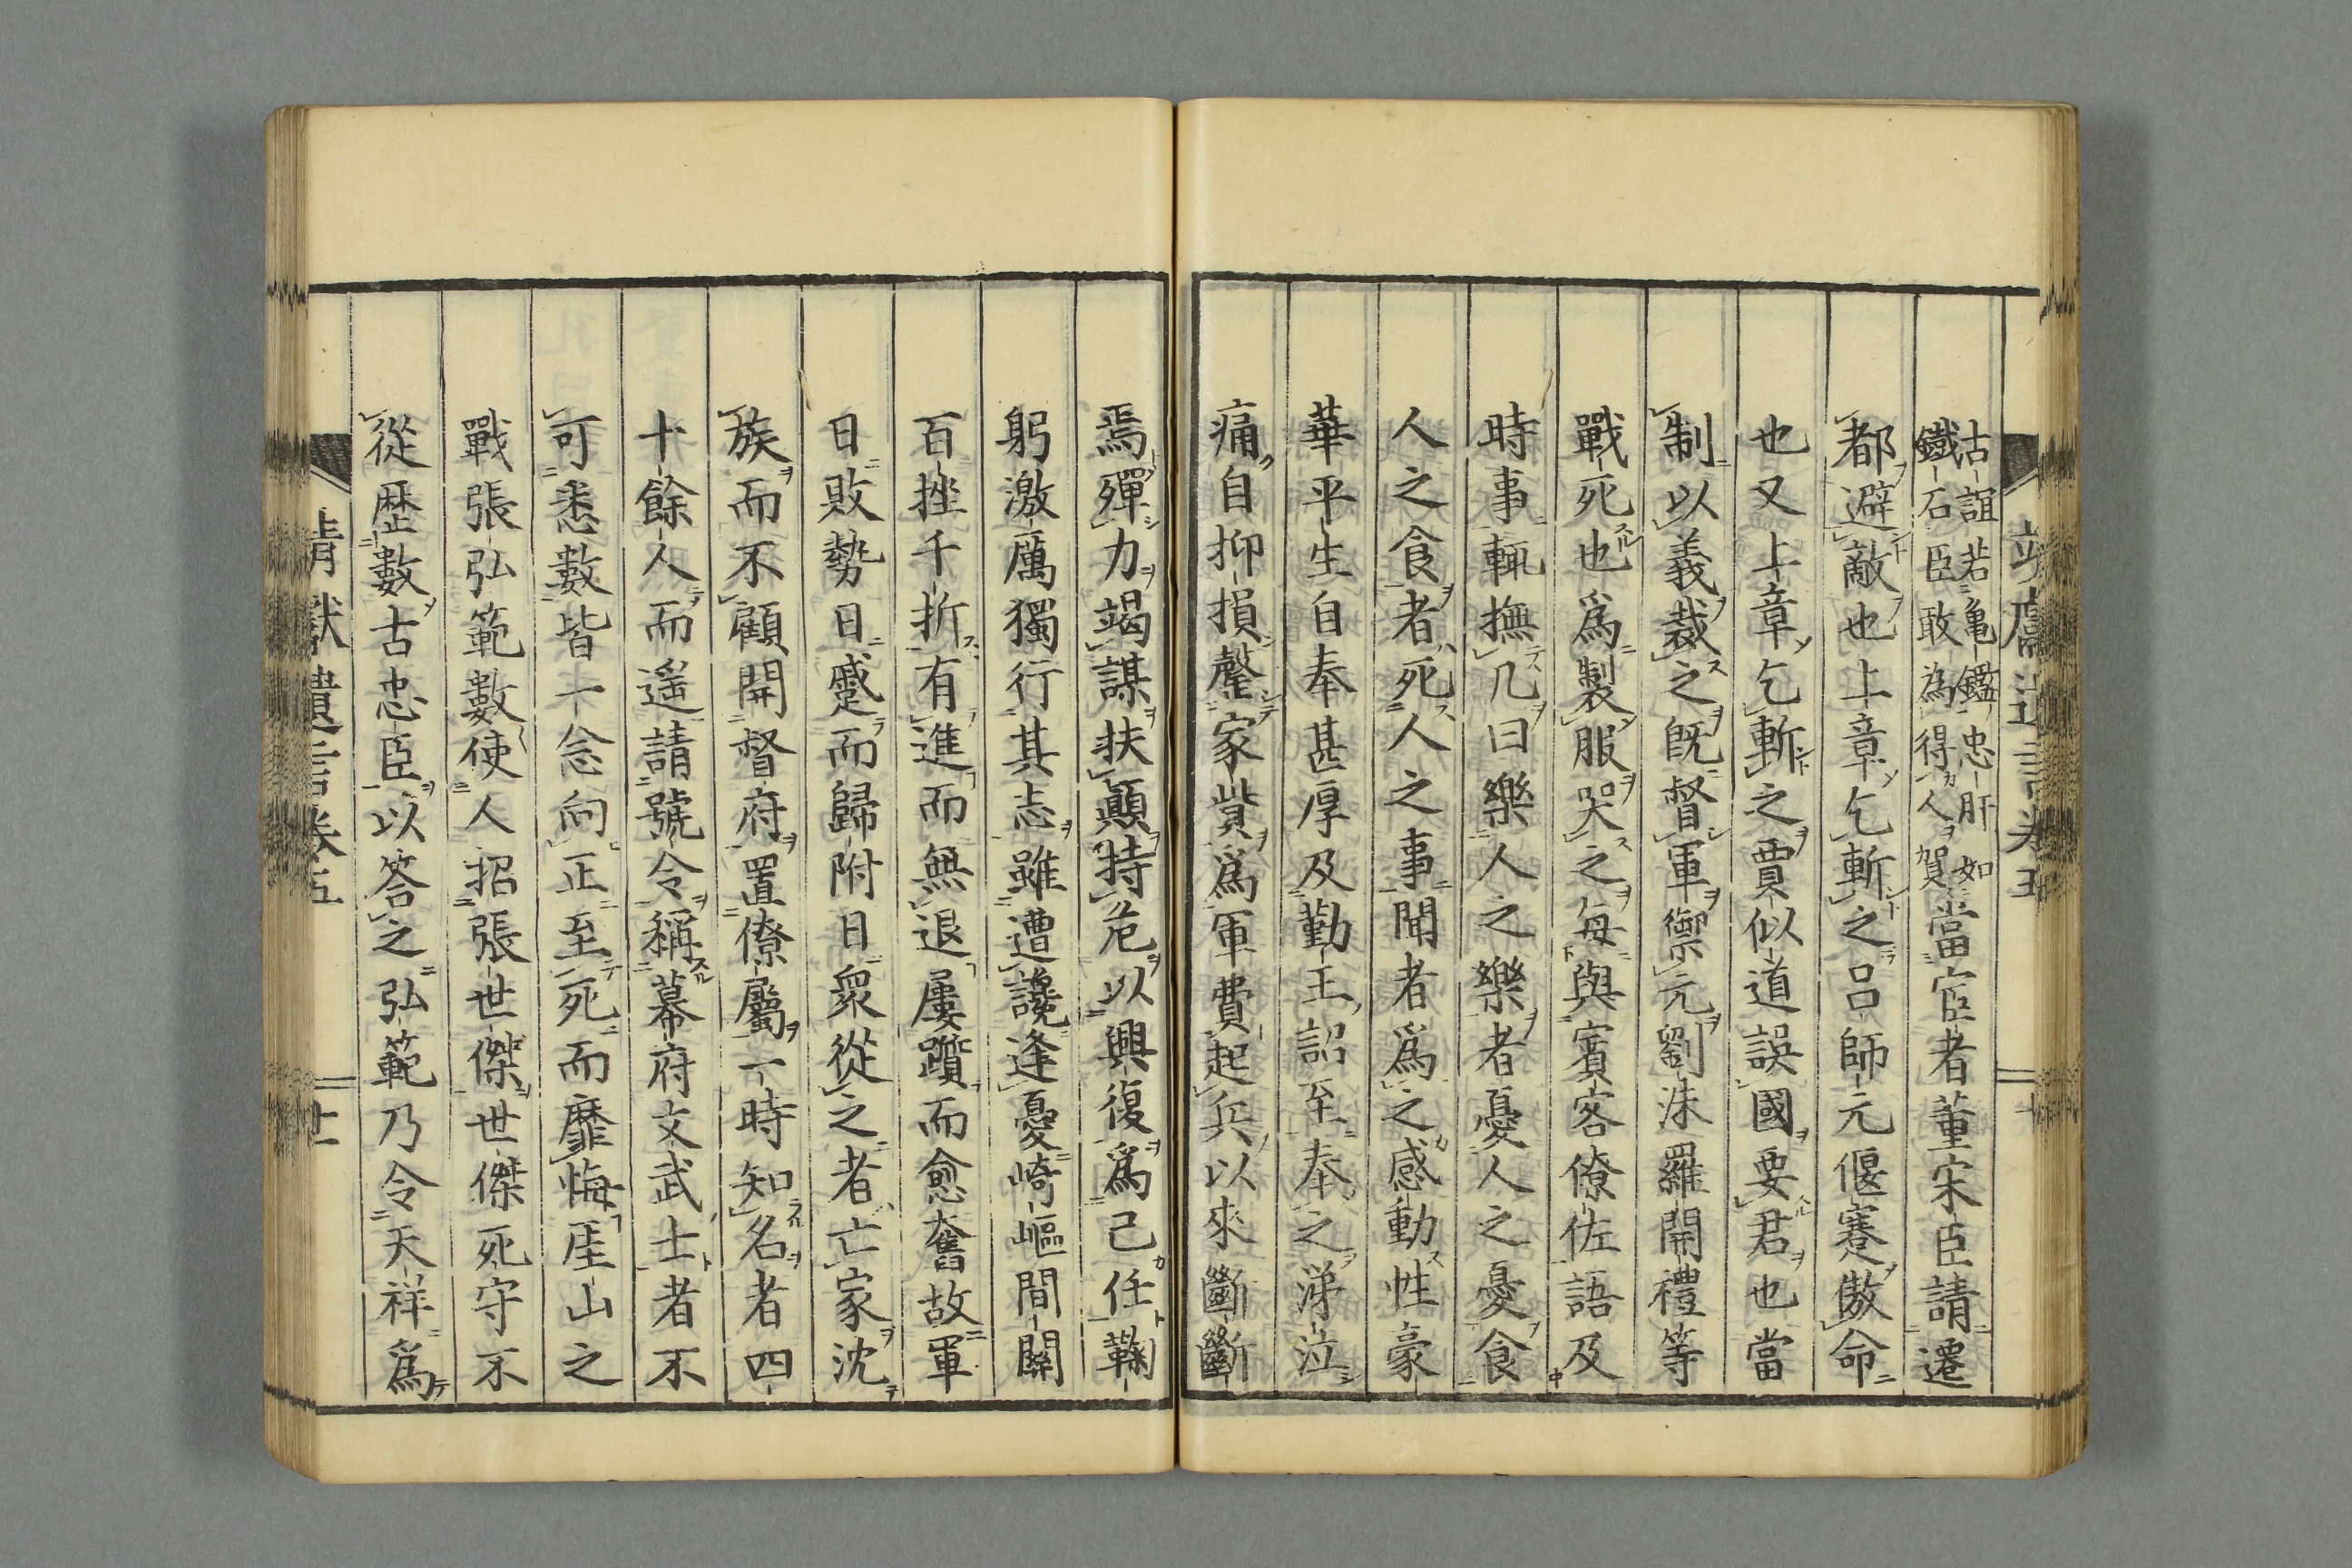 古誼若亀鑑忠肝如
鐵石臣敢為得人賀
當宦者董宋臣請遷
都避敵也上章乞斬之呂師元偃蹇傲命
也又上章乞斬之賈似道誤國要君也當
制以義裁之既督軍禦元劉洙羅開禮等
戰死也爲製服哭之每與賓客僚佐語及
時事輒撫几曰樂人之樂者憂人之憂食
人之食者死人之事聞者爲之感動性豪
華平生自奉甚厚及勤王詔至奉之涕泣
痛自抑損罄家貲爲軍費起兵以來斷斷
焉殫力竭謀扶顚持危以興復爲己任鞠
躬激厲獨行其志雖遭讒逢憂崎嶇間關
百挫千折有進而無退屢躓而愈奮故軍
日敗勢日蹙而歸附日衆從之者亡家沈
族而不顧開督府置僚屬一時知名者四
十餘人而遥請號令稱幕府文武士者不
可悉數皆一念向正至死而靡悔厓山之
戰張弘範數使人招張世傑世傑死守不
從歴數古忠臣以答之弘範乃令天祥爲
靖獻遺言卷五